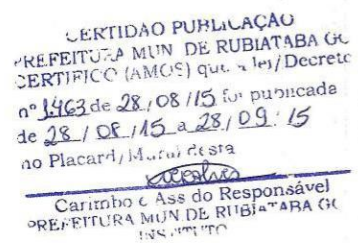 CERTIDÃO PUBLICAÇÃO
PREFEITURA MUN. DE RUBIATABA GO
CERTIFICO (AMOS) que a lei/Decreto
nº 1463 de 28/08/15 foi publicada
de 28/08/15 a 28/09/15
no Placard/Mural desta
Carimbo e Ass do Responsável
PREFEITURA MUN. DE RUBIATABA GO